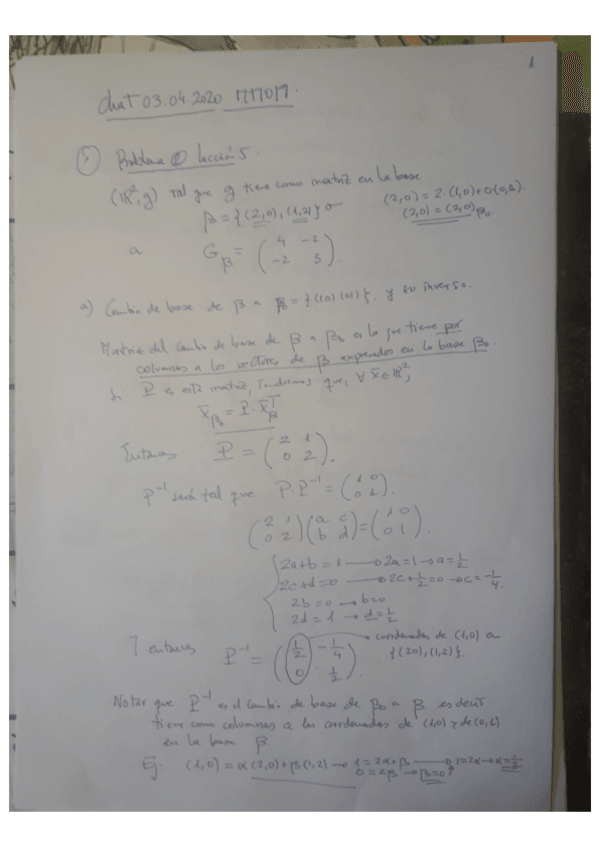 1
chat 03.04.2020 MM017.
5) Problema ② Lección 5.
(ℝ², g) tal que g tiene como matriz en la base
β = {(2,0), (1,2)} σ
(2,0) = 2·(1,0)+0(0,1).
(2,0) = (2,0)β₀.
a G_β = ( 4 -2
-2 5 ).
a) Cambio de base de β a β₀ = {(1 0) (0 1)}. y su inverso.
Matriz del cambio de base de β a β₀ es la que tiene por
columnas a los vectores de β expresados en la base β₀
Si P es esta matriz, tendremos que, ∀ x̄ ∈ ℝ²,
x̄_β₀ = P · x̄_β^T
Entonces P = ( 2 1
0 2 ).
P⁻¹ será tal que P·P⁻¹ = ( 1 0
0 1 ).
( 2 1 ( a c = ( 1 0
0 2 ) b d ) 0 1 ).
2a+b = 1 → 2a=1 → a=1/2
2c+d=0 → 2c+1/2=0 → c=-1/4.
2b=0 → b=0
2d=1 → d=1/2
Y entonces P⁻¹ = ( 1/2 -1/4
0 1/2 ).
coordenadas de (1,0) en
{(2 0), (1,2)}.
Notar que P⁻¹ es el cambio de base de β₀ a β es decir
tiene como columnas a las coordenadas de (1,0) y de (0,1)
en la base β
Ej: (1,0) = α(2,0)+β(1,2) → 1=2α+β → 1=2α → α=1/2
0=2β → β=0